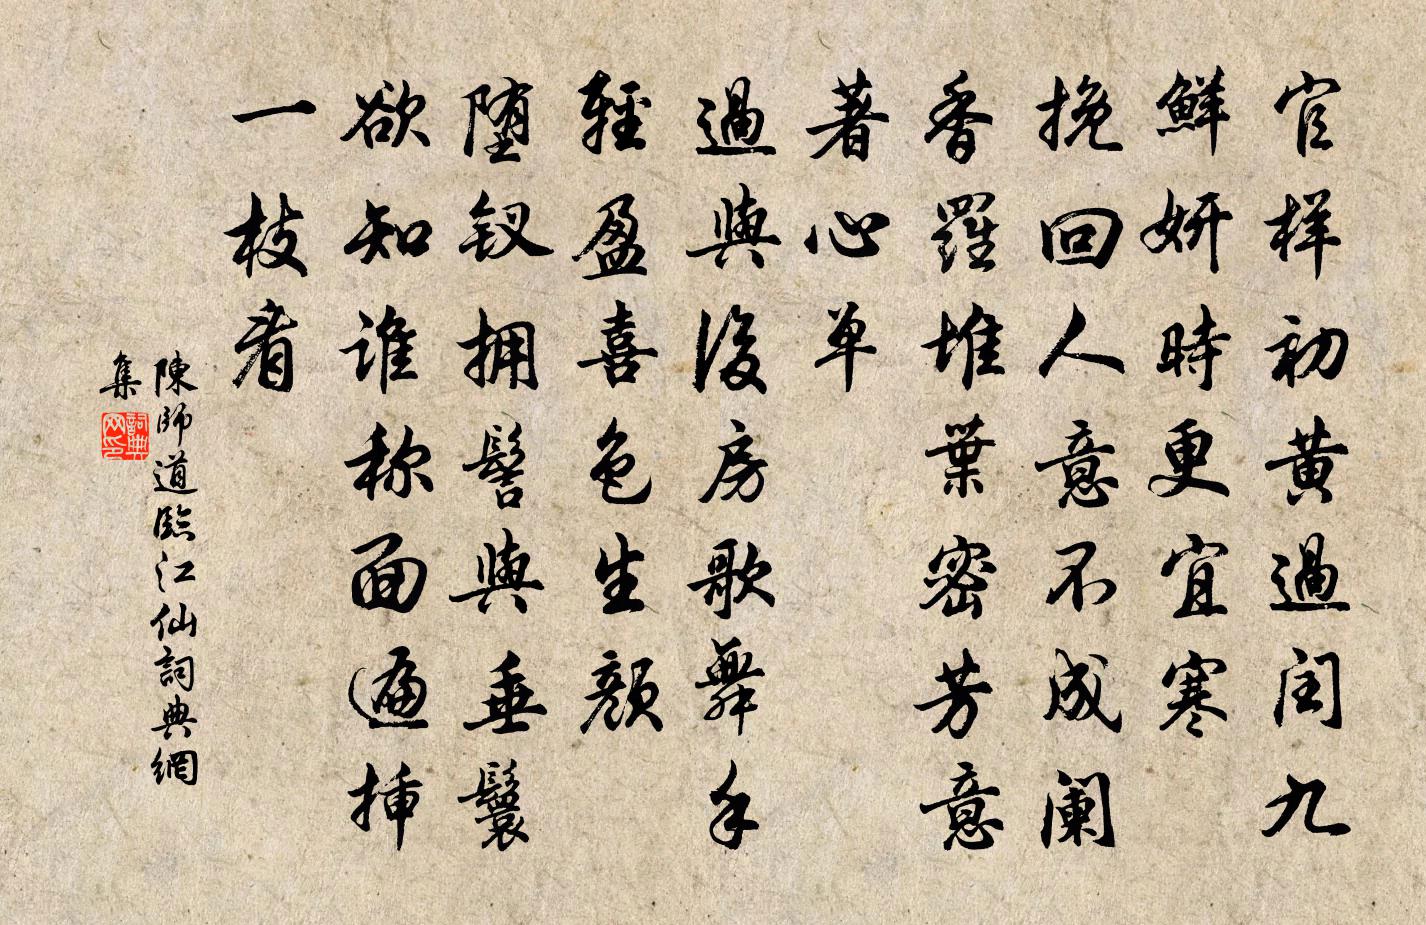 官样初黄過闰九
鮮妍時更宜寒
挽回人意不成阑
香羅堆葉密芳意
著心单
過與後房歌舞手
輕盈喜色生颜
堕钗拥髻與垂鬟
欲知谁称面遍插
一枝看
陳師道臨江仙詞典網
集
詞典网印